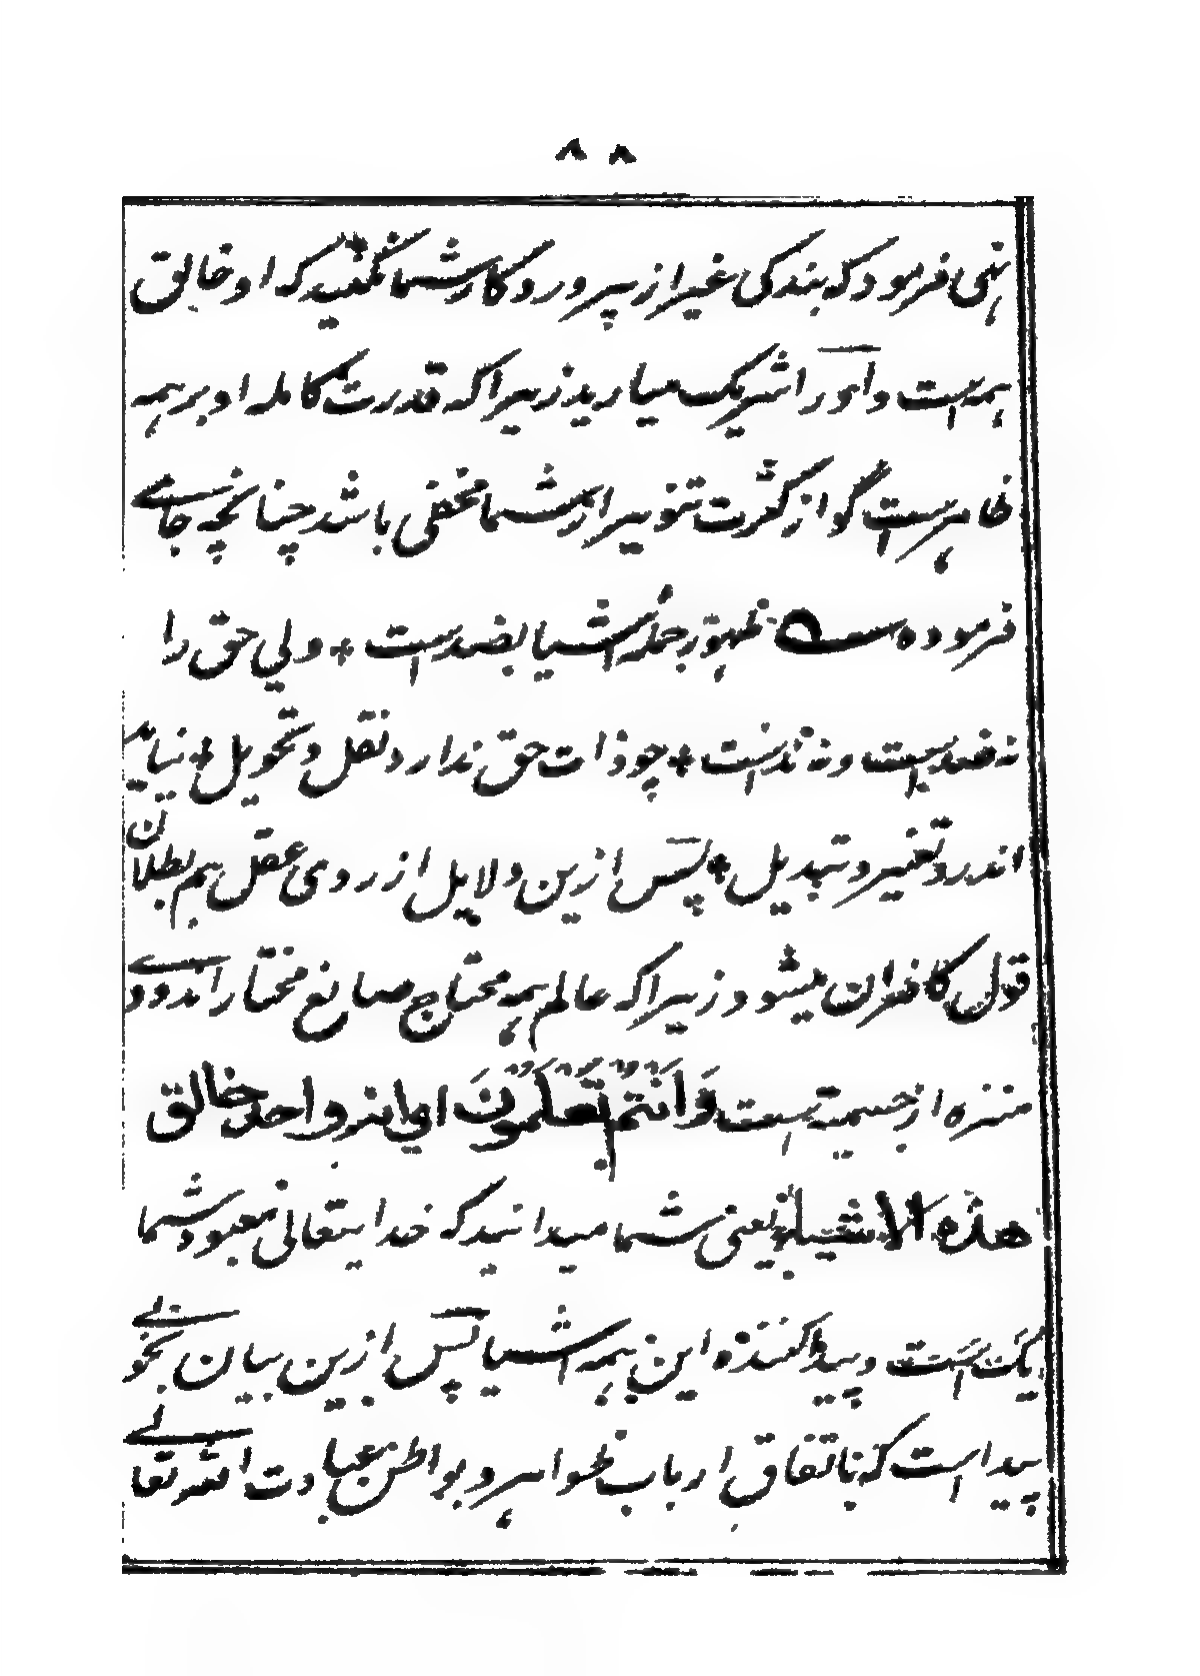 ۸۸
نهی فرمود که بندگی غیر از پروردگار شما نکنید که او خالق
همه است و او را شریک میارید زیرا که قدرت کامله او بر همه
ظاهرست گو از کثرت تنویر از شما مخفی باشد چنانچه جامے
فرموده ظهور جمله اشیا بضد است * ولی حق را
نه ضد است و نه ند است * چو ذات حق ندارد نقل و تحویل * نیاید
اندرو تغییر و تبدیل * پس ازین دلایل از روی عقل هم بطلان
قول کافران میشود زیرا که عالم همه محتاج صانع مختار اند و وے
منزه از جسمیت است وَاَنْتُمْ تَعْلَمُوْنَ ای انه واحد خالق
هذه الاشیاء یعنی شما میدانید که خدایتعالی معبود شما
یک است و پیدا کننده این همه اشیا پس ازین بیان بخوبے
پیدا است که باتفاق ارباب ظواهر و بواطن عبادت الله تعالے